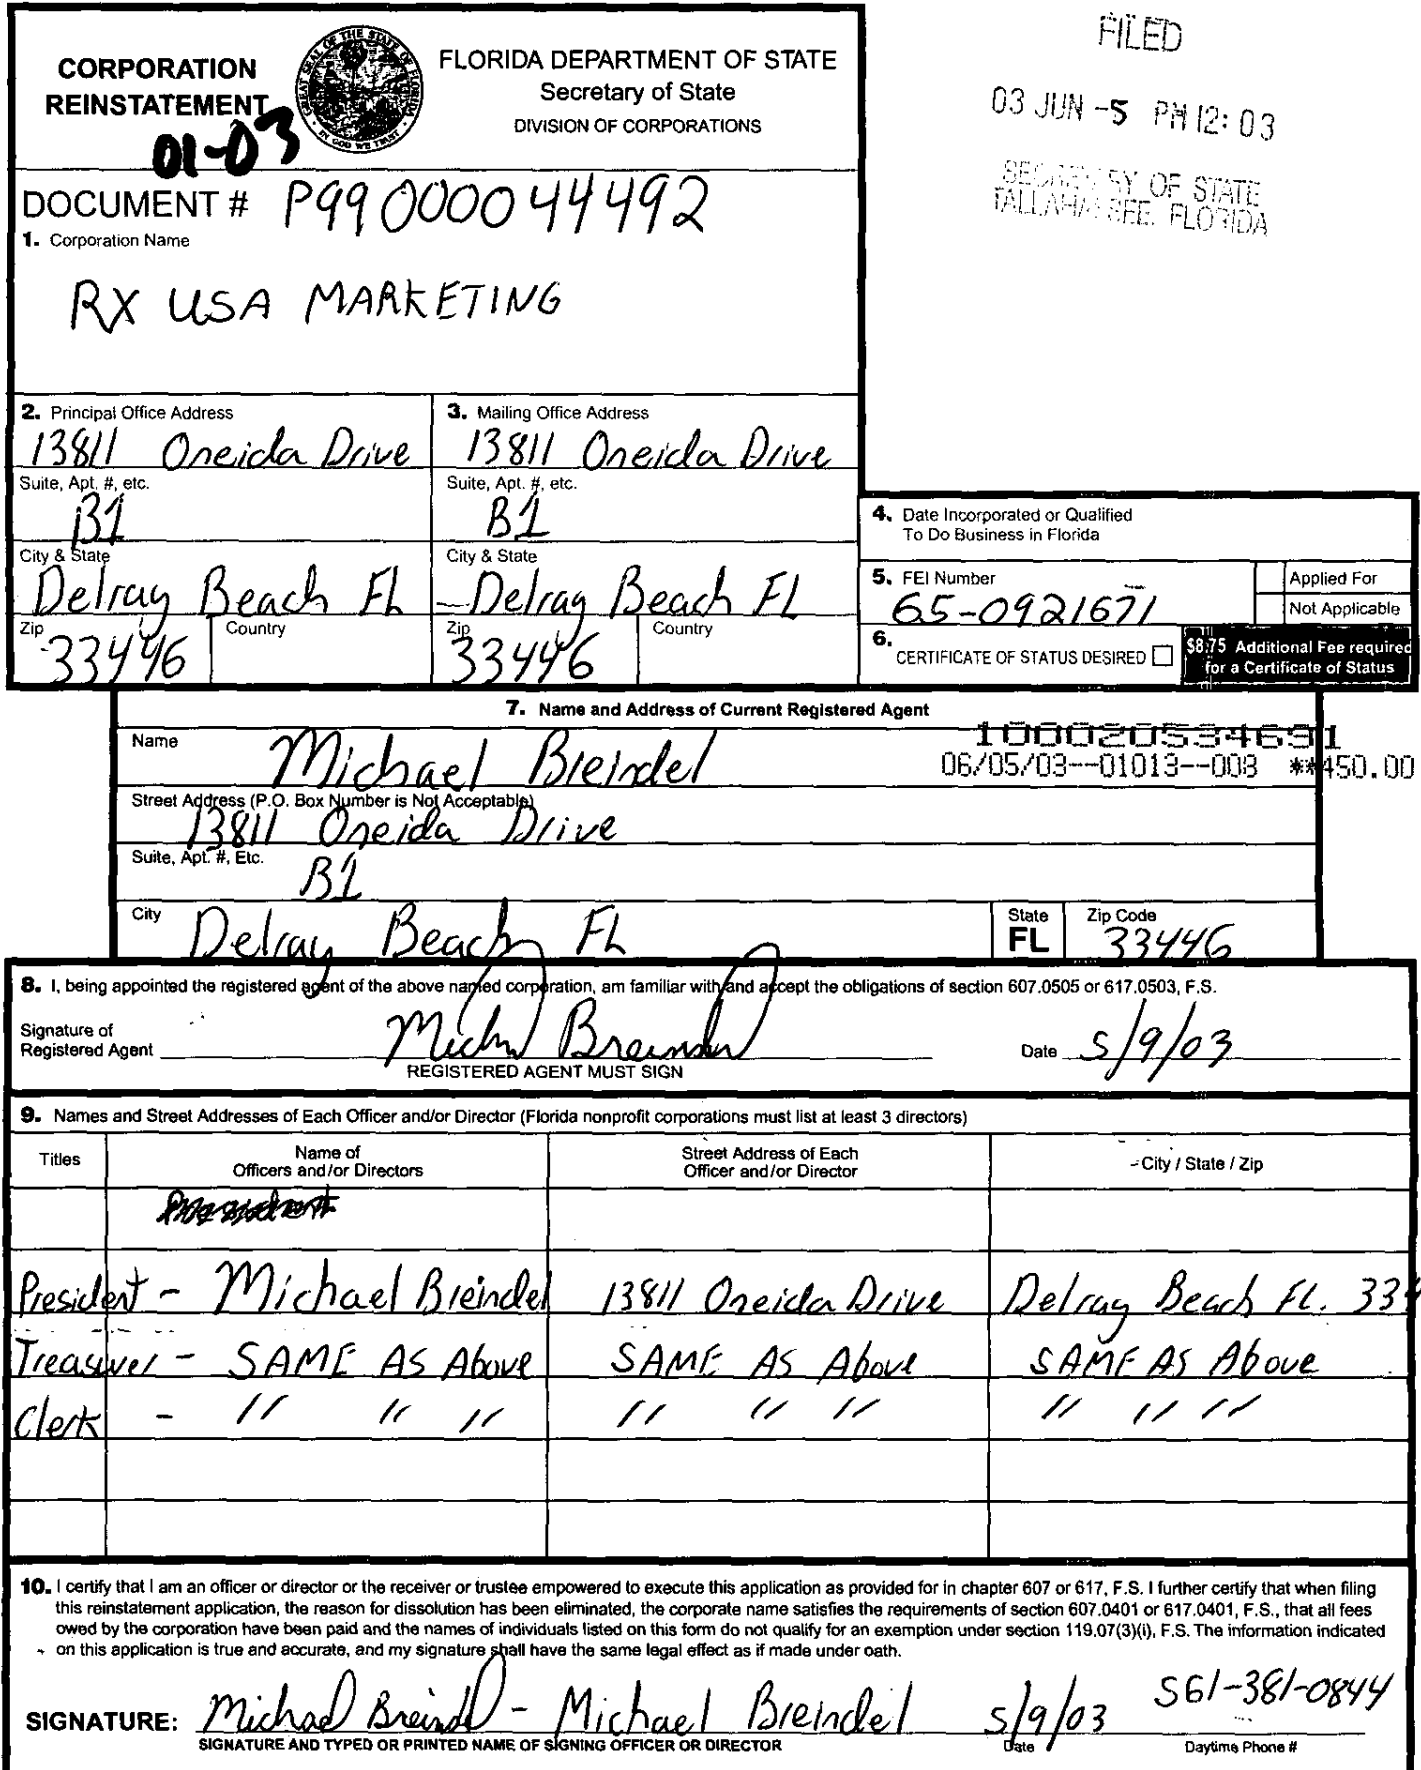 CORPORATION
REINSTATEMENT
01-03
GREAT SEAL OF THE STATE OF FLORIDA
IN GOD WE TRUST
FLORIDA DEPARTMENT OF STATE
Secretary of State
DIVISION OF CORPORATIONS
FILED
03 JUN -5 PM 12: 03
SECRETARY OF STATE
TALLAHASSEE, FLORIDA
DOCUMENT # P99000044492
1. Corporation Name
RX USA MARKETING
2. Principal Office Address
13811 Oneida Drive
Suite, Apt. #, etc.
B1
City & State
Delray Beach FL
Zip
33446
Country
3. Mailing Office Address
13811 Oneida Drive
Suite, Apt. #, etc.
B1
City & State
Delray Beach FL
Zip
33446
Country
4. Date Incorporated or Qualified
To Do Business in Florida
5. FEI Number
65-0921671
Applied For
Not Applicable
6. CERTIFICATE OF STATUS DESIRED
$8.75 Additional Fee required
for a Certificate of Status
7. Name and Address of Current Registered Agent
Name
Michael Breindel
100020534691
06/05/03--01013--003 **450.00
Street Address (P.O. Box Number is Not Acceptable)
13811 Oneida Drive
Suite, Apt. #, Etc.
B1
City
Delray Beach FL
State
FL
Zip Code
33446
8. I, being appointed the registered agent of the above named corporation, am familiar with and accept the obligations of section 607.0505 or 617.0503, F.S.
Signature of
Registered Agent Michael Breindel
Date 5/9/03
REGISTERED AGENT MUST SIGN
9. Names and Street Addresses of Each Officer and/or Director (Florida nonprofit corporations must list at least 3 directors)
Titles
Name of
Officers and/or Directors
Street Address of Each
Officer and/or Director
City / State / Zip
President
President - Michael Breindel 13811 Oneida Drive Delray Beach FL. 334
Treasurer - SAME AS Above SAME AS Above SAME AS Above
Clerk - " " " " " " " " "
10. I certify that I am an officer or director or the receiver or trustee empowered to execute this application as provided for in chapter 607 or 617, F.S. I further certify that when filing
this reinstatement application, the reason for dissolution has been eliminated, the corporate name satisfies the requirements of section 607.0401 or 617.0401, F.S., that all fees
owed by the corporation have been paid and the names of individuals listed on this form do not qualify for an exemption under section 119.07(3)(i), F.S. The information indicated
on this application is true and accurate, and my signature shall have the same legal effect as if made under oath.
SIGNATURE: Michael Breindel - Michael Breindel 5/9/03 561-381-0844
SIGNATURE AND TYPED OR PRINTED NAME OF SIGNING OFFICER OR DIRECTOR
Date
Daytime Phone #